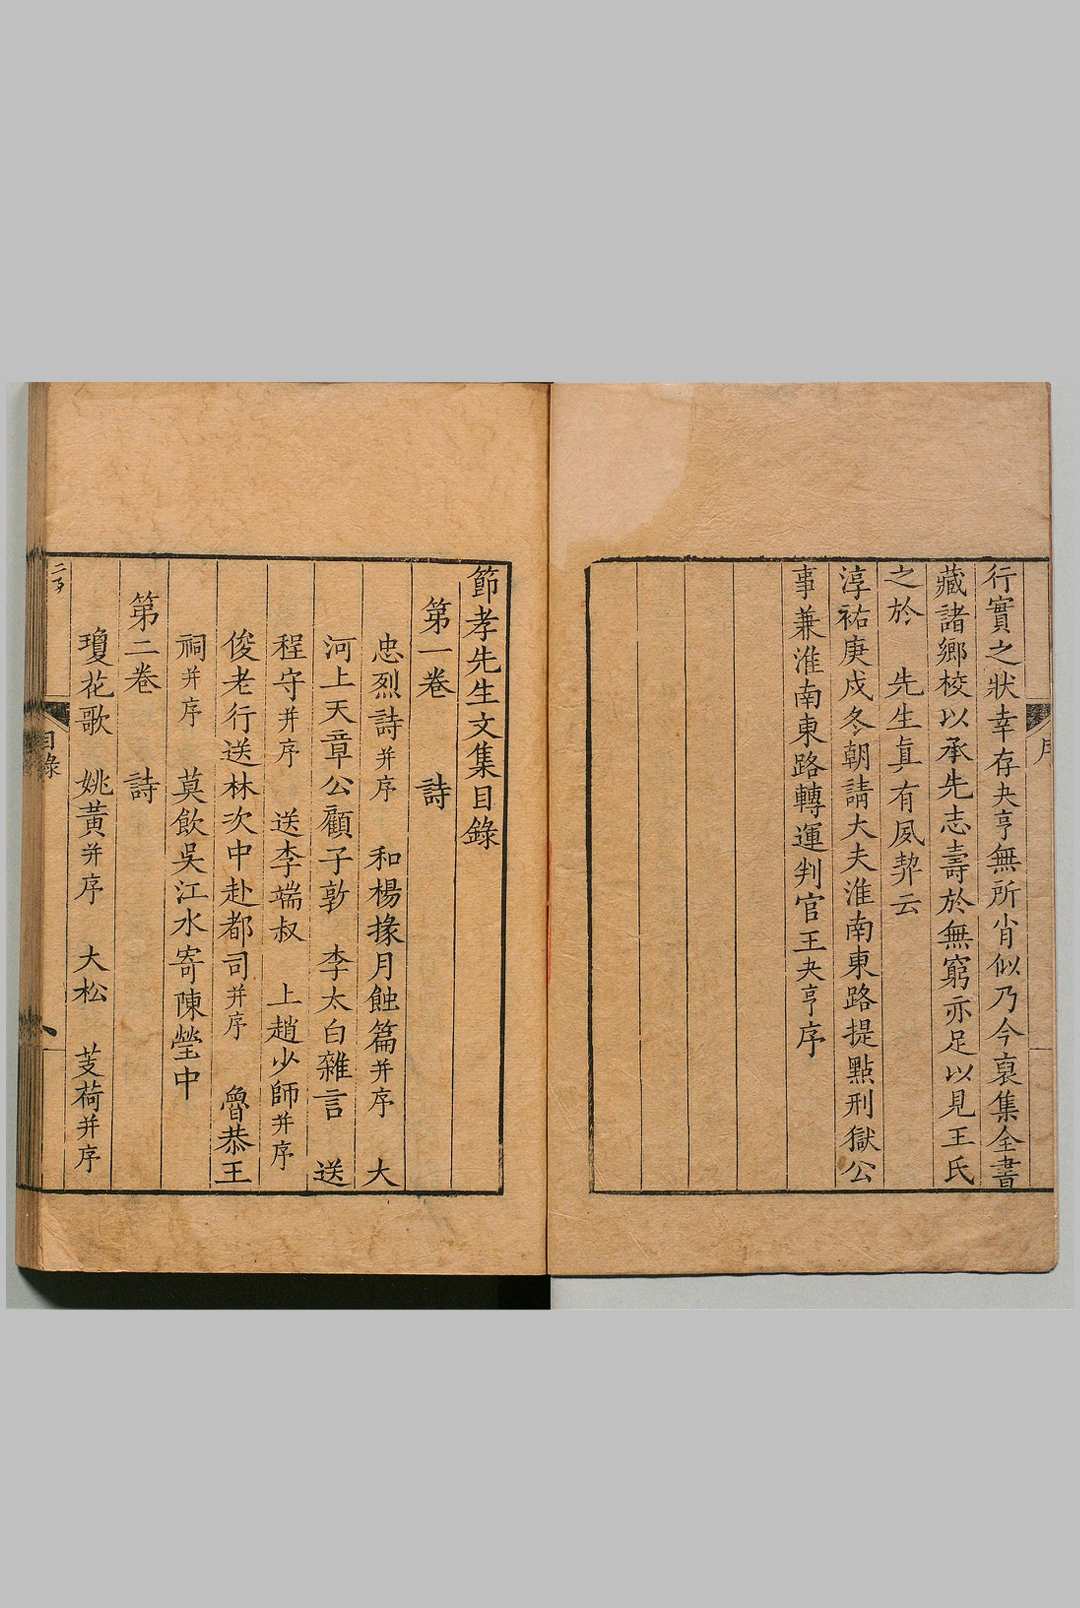 序
行實之狀幸存夬亨無所肖似乃今裒集全書
藏諸鄉校以承先志壽於無窮亦足以見王氏
之於　先生真有夙契云
淳祐庚戍冬朝請大夫淮南東路提點刑獄公
事兼淮南東路轉運判官王夬亨序
節孝先生文集目錄
第一卷　詩
忠烈詩并序　和楊掾月蝕篇并序　大
河上天章公顧子敦　李太白雜言　送
程守并序　送李端叔　上趙少師并序
俊老行送林次中赴都司并序　魯恭王
祠并序　莫飲吳江水寄陳瑩中
第二卷　詩
瓊花歌　姚黃并序　大松　芰荷并序
目錄